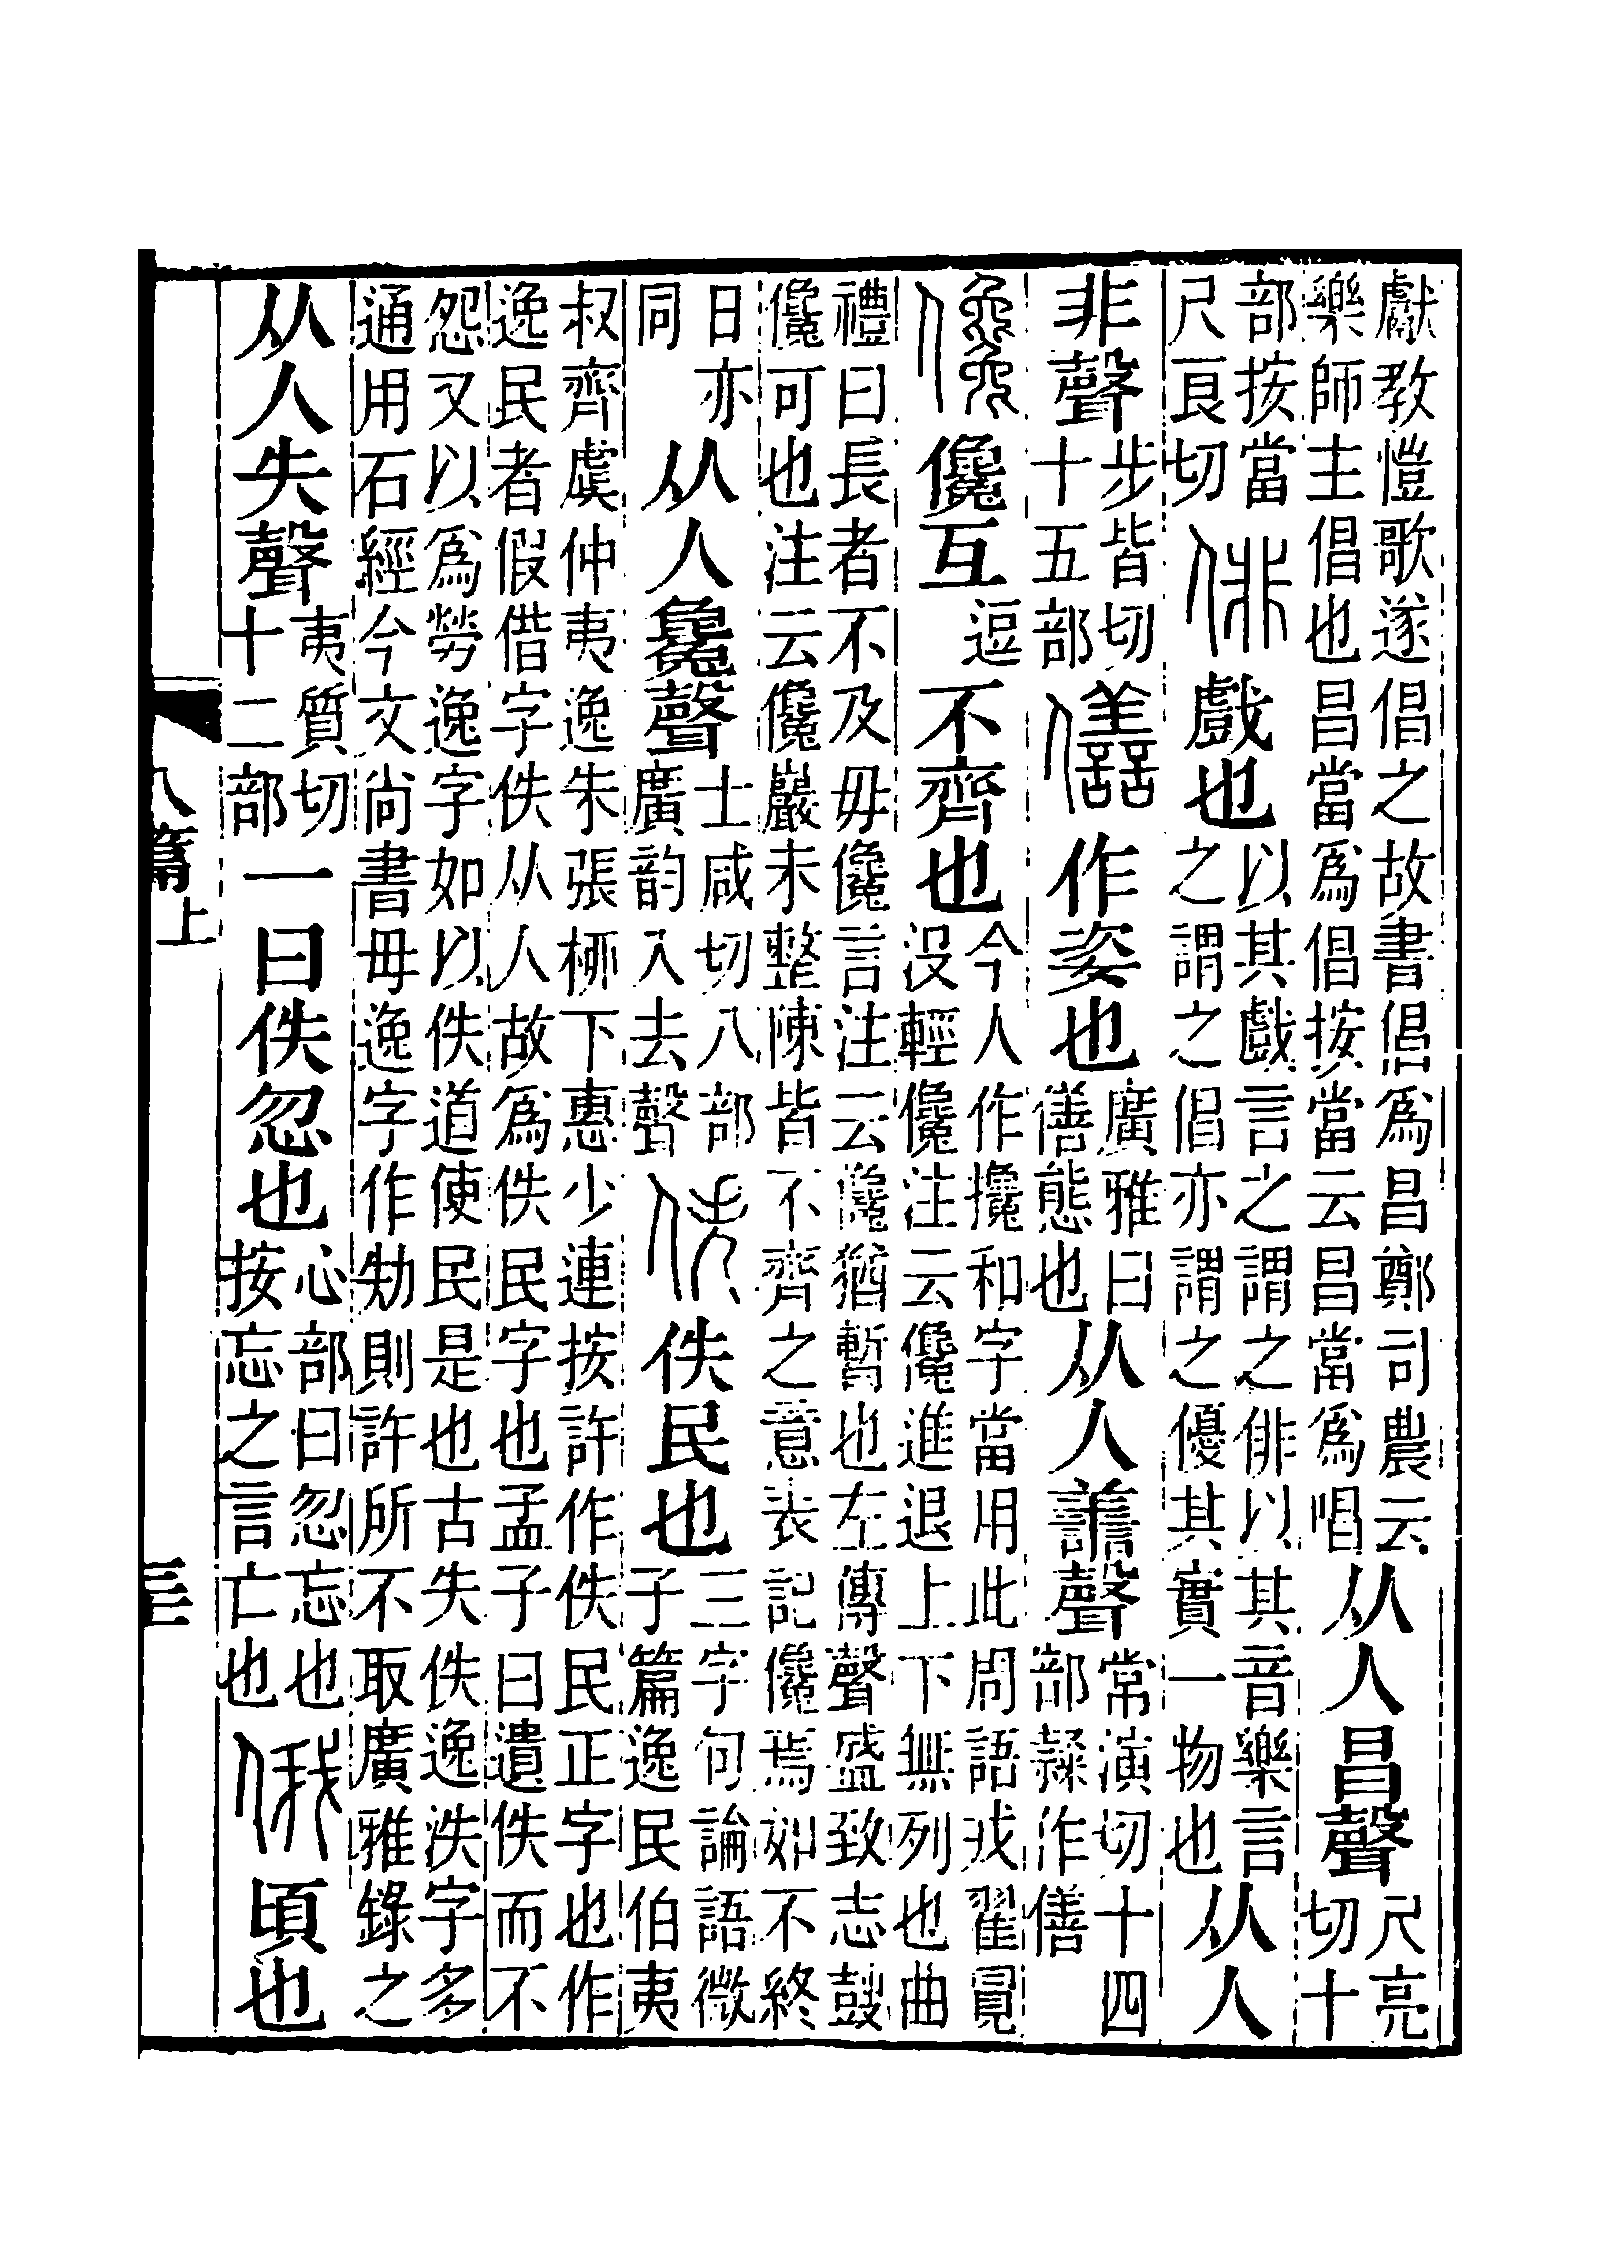 獻教愷歌遂倡之故書倡爲昌鄭司農云
樂師主倡也昌當爲倡按當云昌當爲唱
从人昌聲
尺亮
切十
部按當
尺良切
俳戲也
以其戲言之謂之俳以其音樂言
之謂之倡亦謂之優其實一物也
从人
非聲
步皆切
十五部
僐作姿也
廣雅曰
僐態也
从人譱聲
常演切十四
部隷作僐
儳儳互
逗
不齊也
今人作攙和字當用此周語戎翟冒
没輕儳注云儳進退上下無列也曲
禮曰長者不及毋儳言注云儳猶暫也左傳聲盛致志鼓
儳可也注云儳巖未整陳皆不齊之意表記儳焉如不終
日亦
同
从人毚聲
士咸切八部
廣韵入去聲
佚佚民也
三字句論語微
子篇逸民伯夷
叔齊虞仲夷逸朱張桺下惠少連按許作佚民正字也作
逸民者假借字佚从人故爲佚民字也孟子曰遺佚而不
怨又以爲勞逸字如以佚道使民是也古失佚逸泆字多
通用石經今文尙書毋逸字作劮則許所不取廣雅錄之
从人失聲
夷質切
十二部
一曰佚忽也
心部曰忽忘也
按忘之言亡也
俄頃也
八篇上